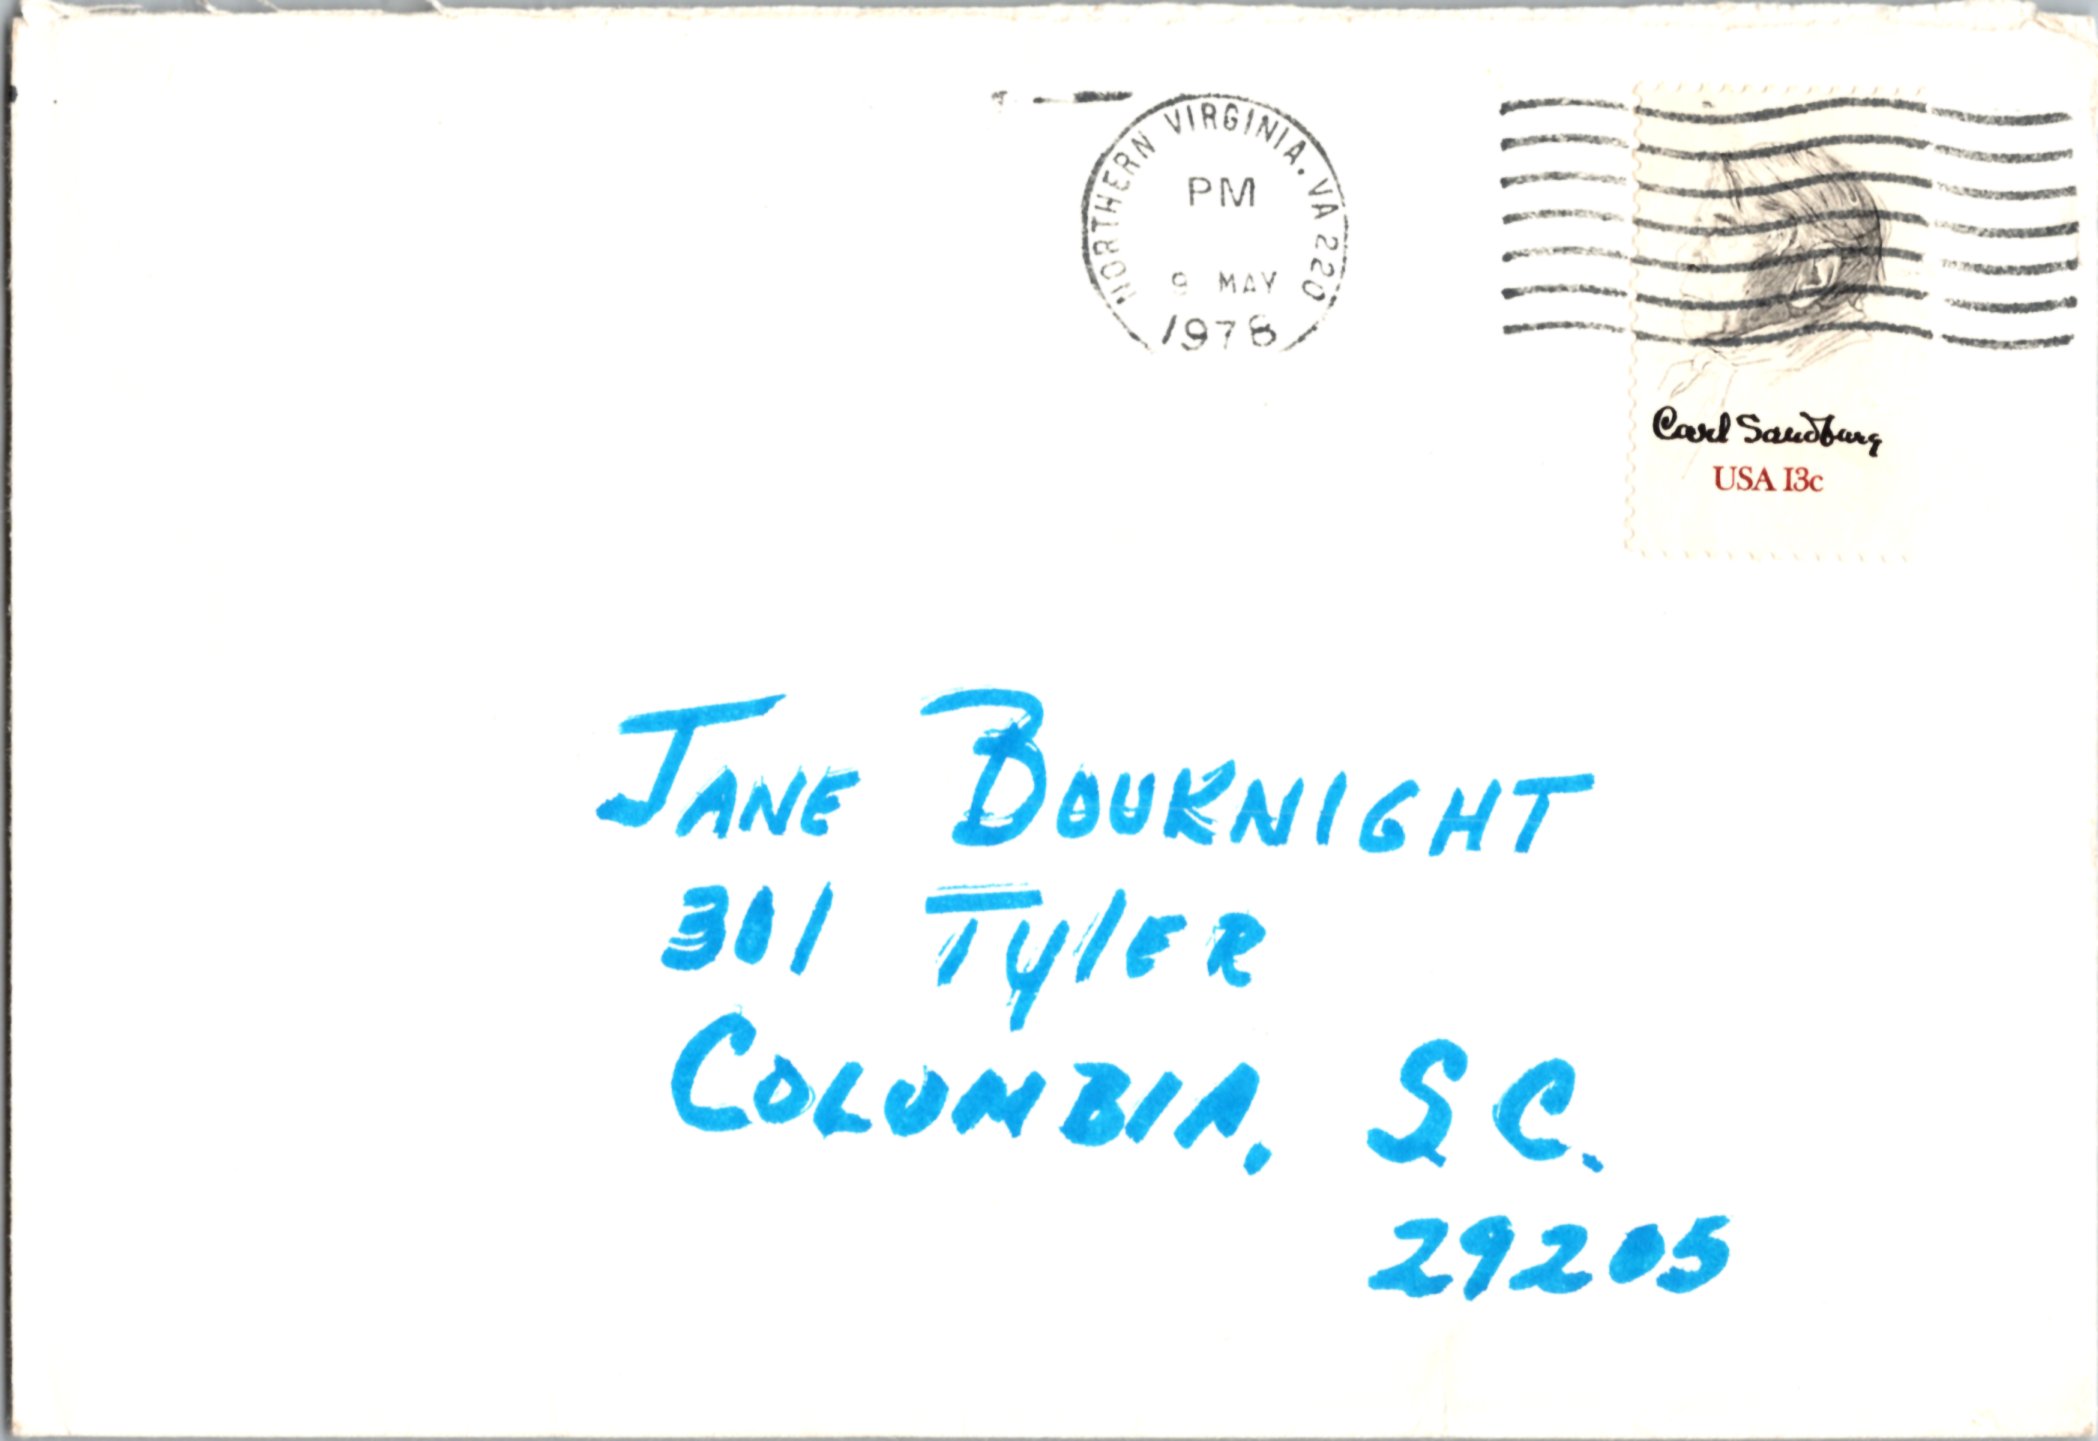 NORTHERN VIRGINIA. VA 220
PM
9 MAY
1978
Carl Sandburg
USA 13c
JANE BOUKNIGHT
301 TylER
COLUMBIA, SC.
29205